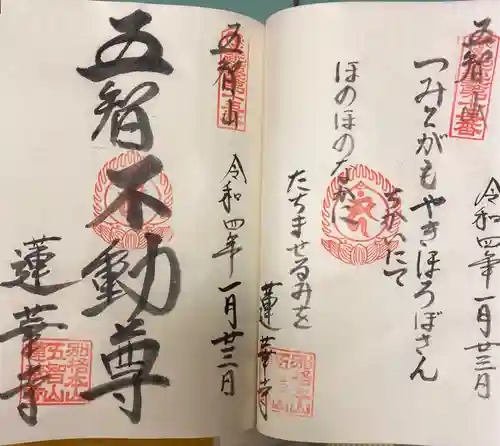 五智山
令和四年一月廿三日
つみとがもやきほろぼさん
ちかいにて
ほのほのなかに
たちませるみを
蓮華寺
五智山
令和四年一月廿三日
五智不動尊
蓮華寺
別格本山
五智山